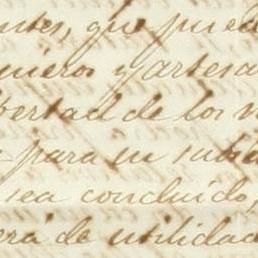 ntes, que pued
nieros y artesa
bertad de los n
para su subs
sea concluido,
erá de utilidad